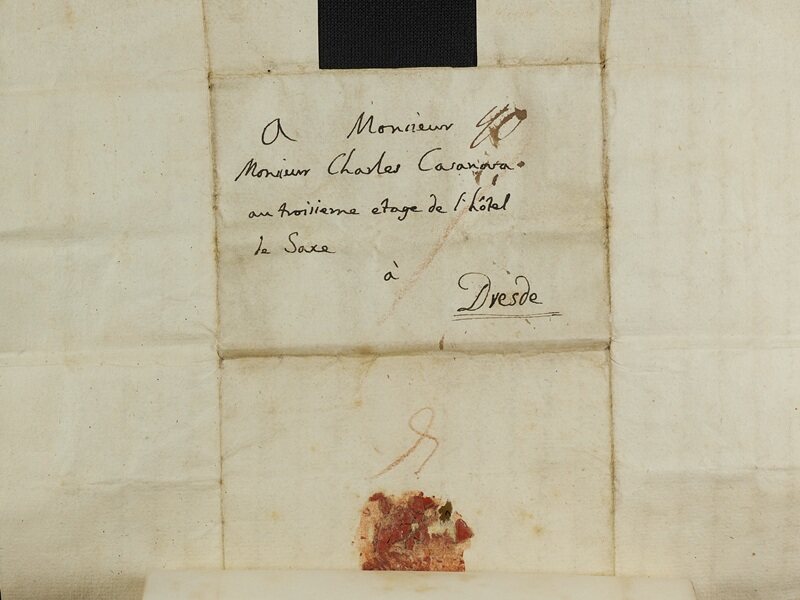 A Monsieur
Monsieur Charles Casanova
au troisieme etage de l'hôtel
de Saxe
à
Dresde